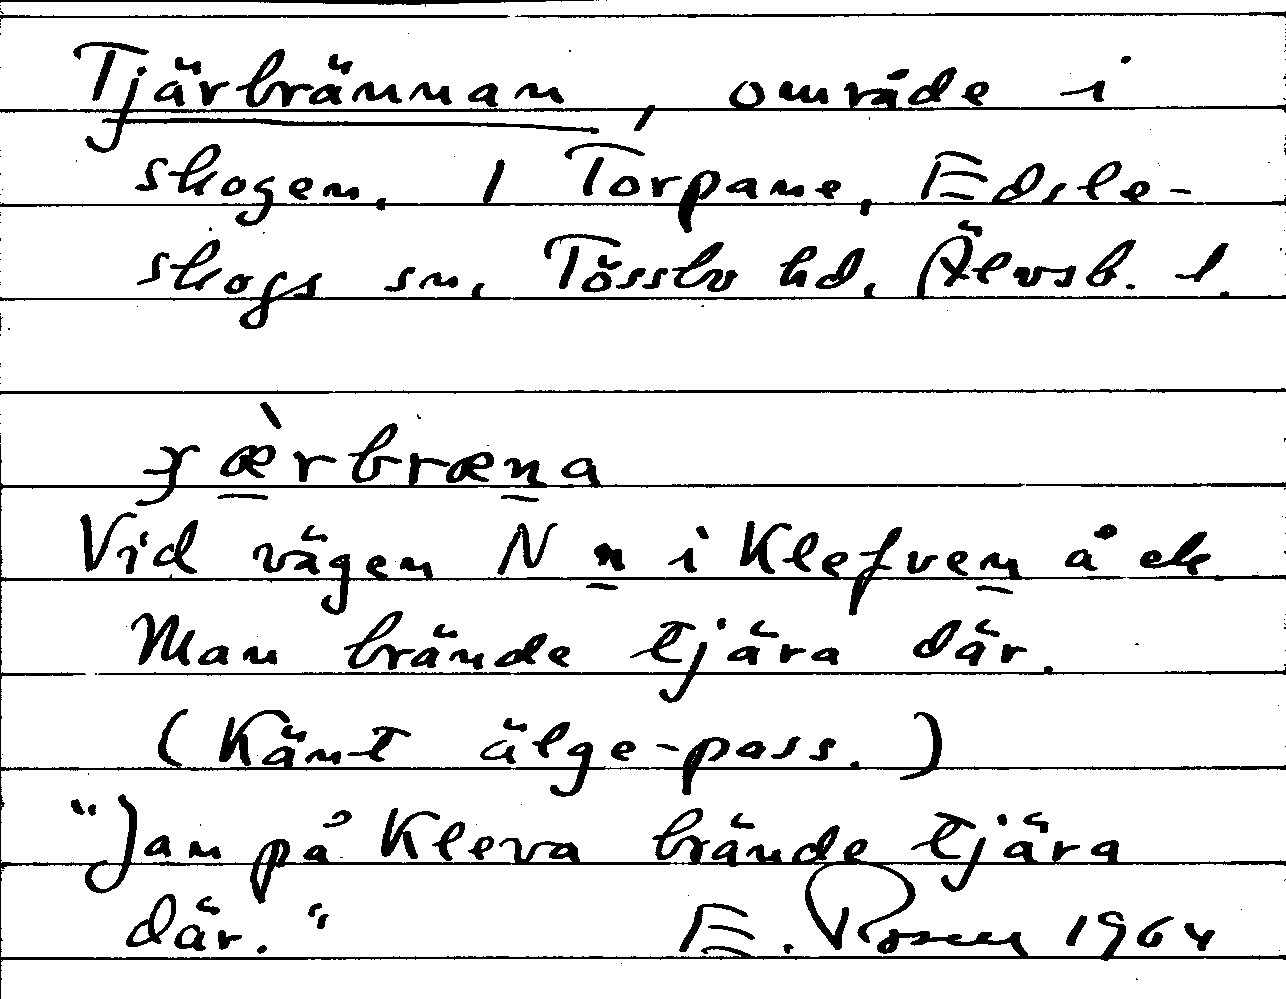 Tjärbrännan, område i
skogen. 1 Torpane, Edsle-
skogs sn. Tössbo hd. Älvsb. l.
ærbræna
Vid vägen N n i Klefven å ek.
Man brände tjära där.
(Känt älge-pass.)
"Jan på Kleva brände tjära
där." E. Rosen 1964